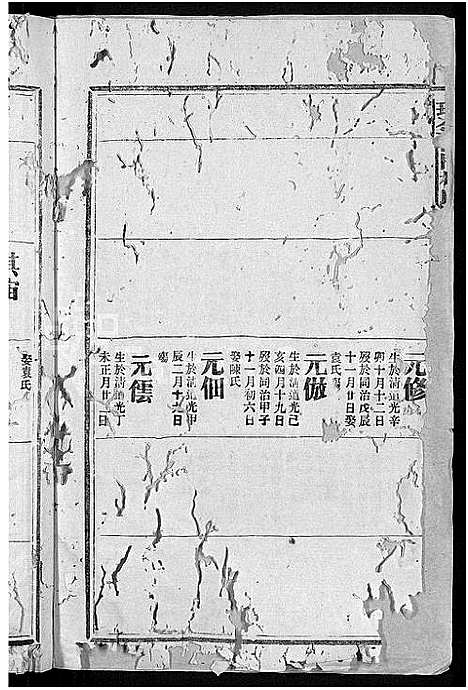 元修
生於清道光辛
卯十月十二日
歿於同治戊辰
十一月廿日娶
袁氏
元倣
生於清道光己
亥四月十九日
歿於同治甲子
十一月初六日
娶陳氏
元佃
生於清道光甲
辰二月十九日
殤
元儒
生於清道光丁
未正月廿三日
娶袁氏